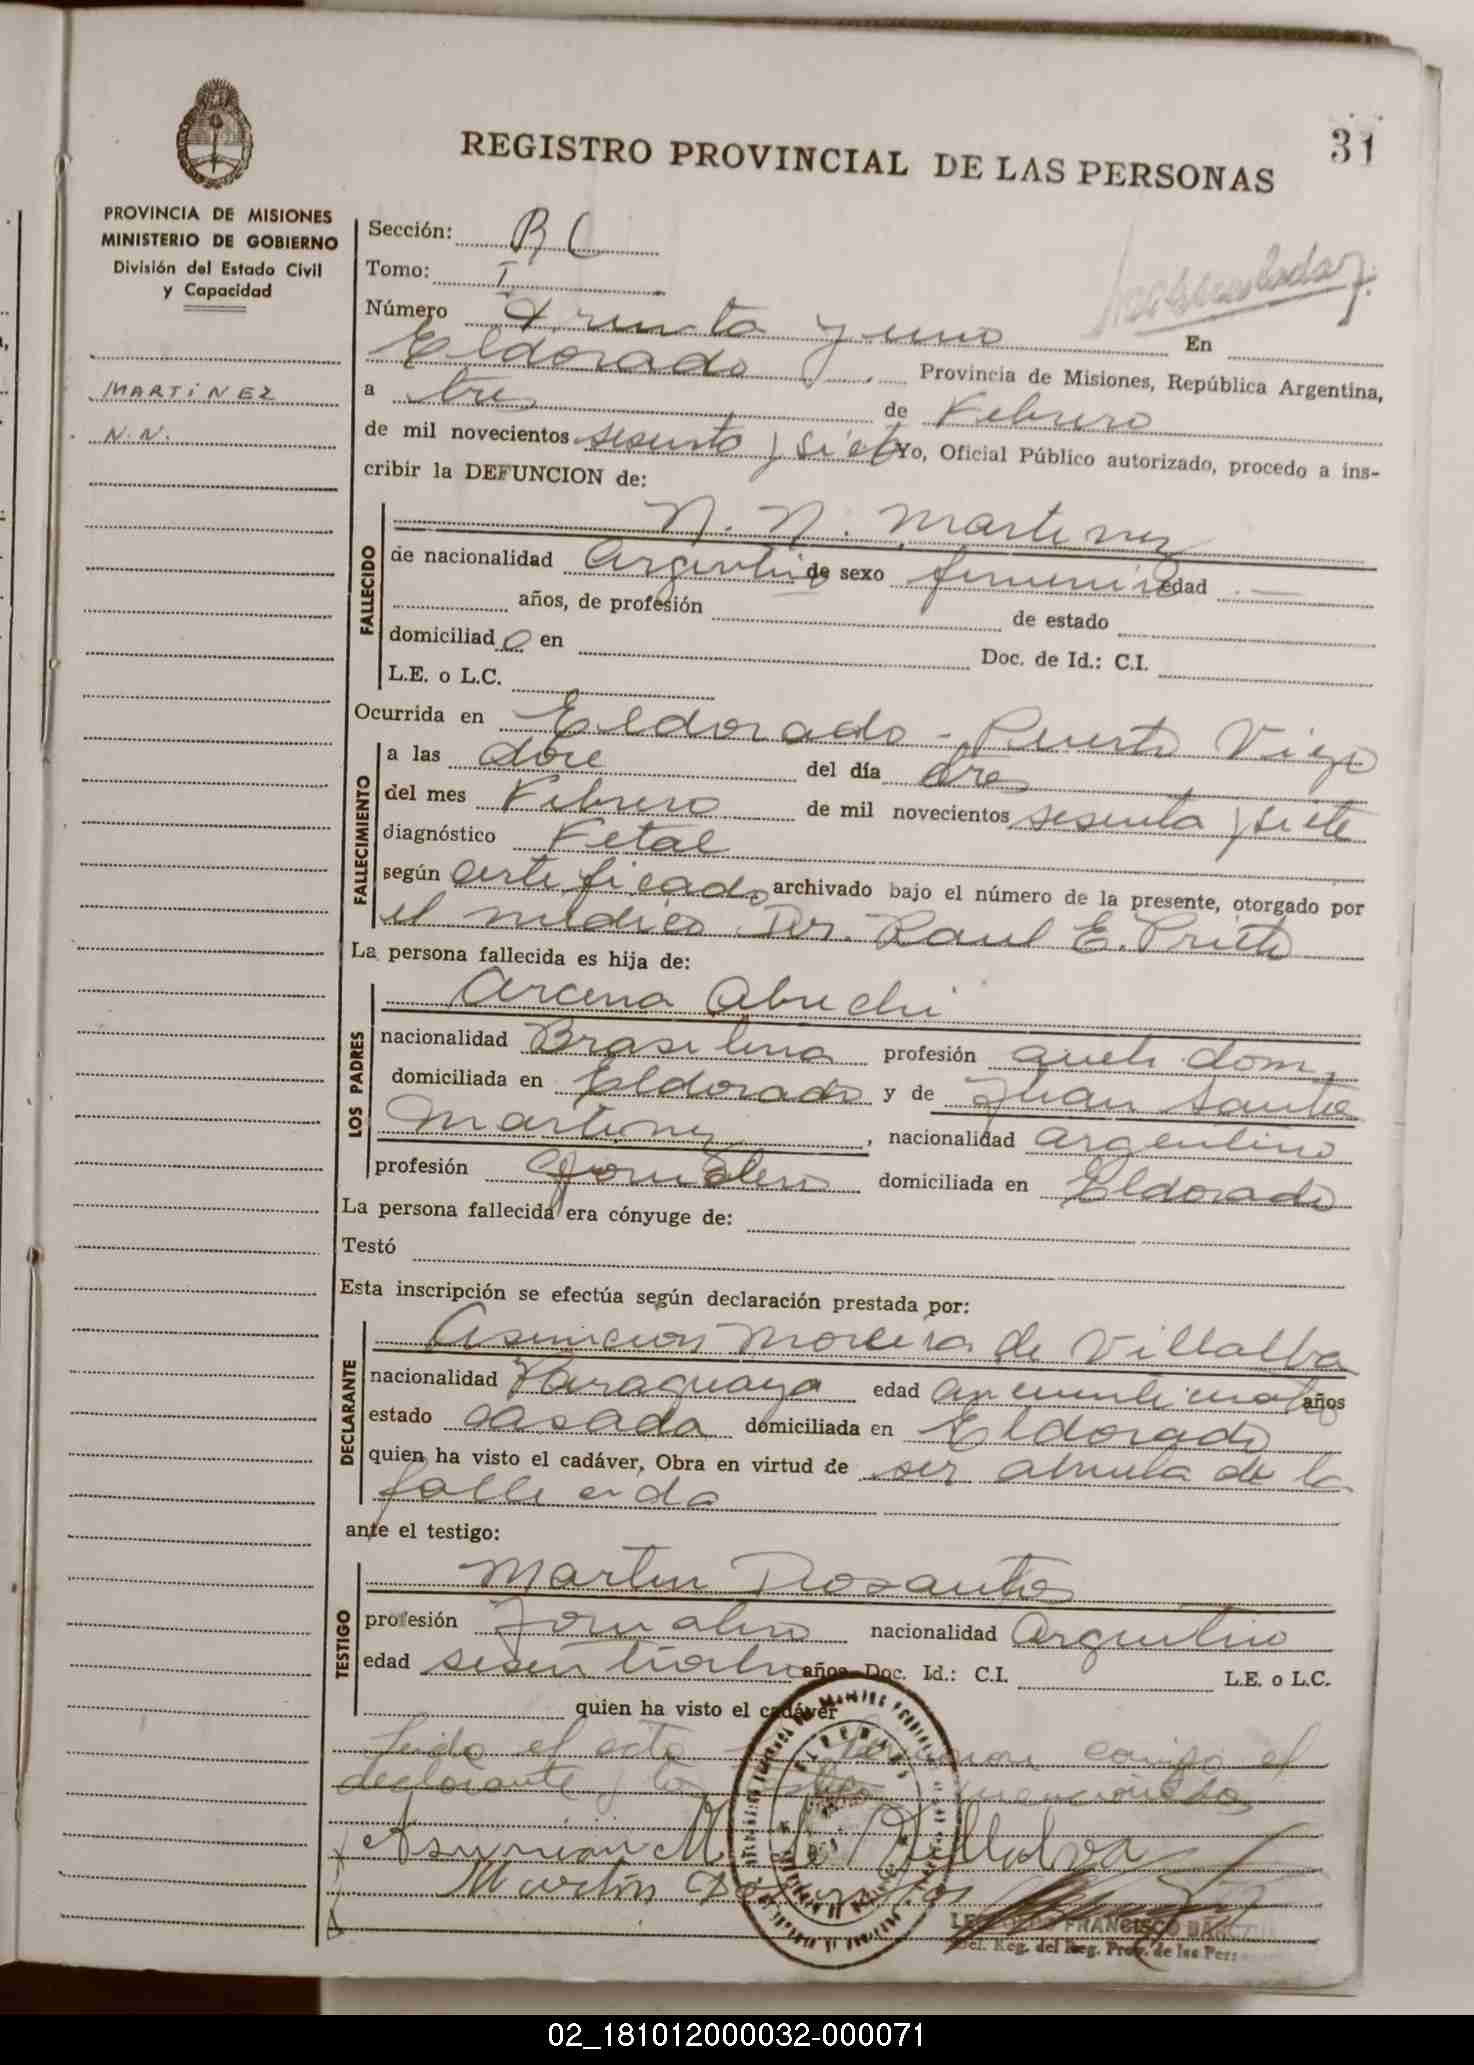 31
REGISTRO PROVINCIAL DE LAS PERSONAS
PROVINCIA DE MISIONES
MINISTERIO DE GOBIERNO
División del Estado Civil
y Capacidad
MARTINEZ
N.N.
Sección: B C
Tomo: I
Número Treinta y uno En
Eldorado, Provincia de Misiones, República Argentina,
a tres de Febrero
de mil novecientos sesenta y siete Yo, Oficial Público autorizado, procedo a ins-
cribir la DEFUNCION de:
FALLECIDO
N. N. Martinez
de nacionalidad Argentina de sexo femenino edad —
años, de profesión de estado
domiciliado en Doc. de Id.: C.I.
L.E. o L.C.
Ocurrida en Eldorado - Puerto Viejo
FALLECIMIENTO
a las doce del día tres
del mes Febrero de mil novecientos sesenta y siete
diagnóstico Fetal
según certificado archivado bajo el número de la presente, otorgado por
el medico Dr. Raul E. Prieto
La persona fallecida es hija de:
LOS PADRES
Arcena
nacionalidad Brasilena profesión queh. dom.
domiciliada en Eldorado y de Juan Santos
Martinez, nacionalidad argentino
profesión Jornalero domiciliada en Eldorado
La persona fallecida era cónyuge de:
Testó
Esta inscripción se efectúa según declaración prestada por:
DECLARANTE
Asuncion Moreira de Villalba
nacionalidad Paraguaya edad años
estado casada domiciliada en Eldorado
quien ha visto el cadáver, Obra en virtud de ser abuela de la
fallecida
ante el testigo:
TESTIGO
Martin Dosantos
profesión Jornalero nacionalidad Argentino
edad años Doc. Id.: C.I. L.E. o L.C.
quien ha visto el cadáver
Leido el acta la firman conmigo el
declarante y testigo mencionados
Asuncion M. de Villalva
Martin Dosantos
LEOPOLDO FRANCISCO
Del. Reg. del Reg. Prov. de las Pers
02_181012000032-000071